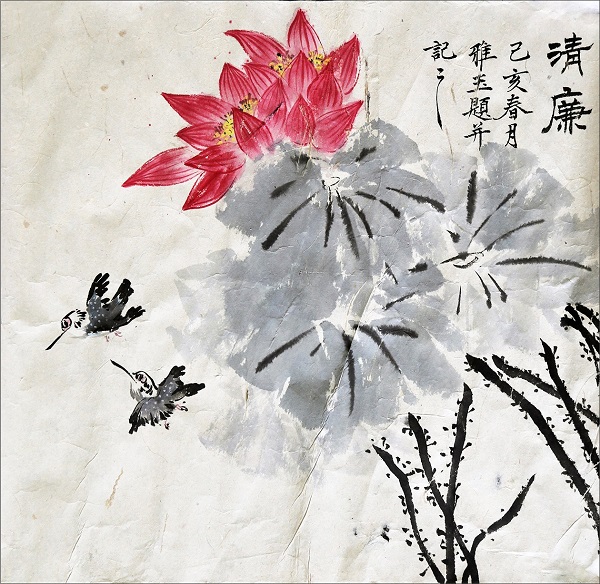 清廉
己亥春月
雅玉題并
記之